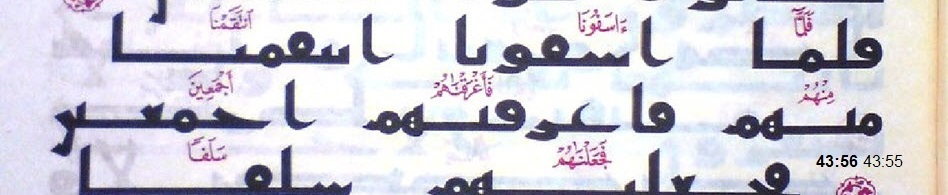 فَلَمَّآ ءَاسَفُونَا ٱنتَقَمْنَا
فلما اسفونا انتقمنا
مِنْهُمْ فَأَغْرَقْنَٰهُمْ أَجْمَعِينَ
منهم فاغرقنهم اجمعين
فَجَعَلْنَٰهُمْ سَلَفًا
فجعلنهم سلفا
43:56 43:55